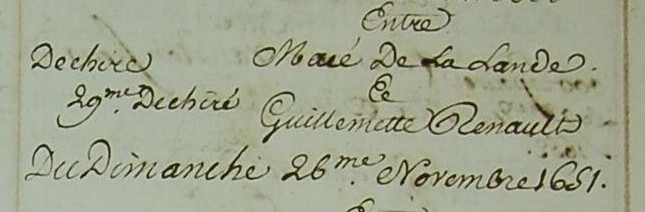 Entre
Dechiré Macé De La Lande.
29.me Dechiré Et
Guillemette Renault
Du Dimanche 26.me Novembre 1651.